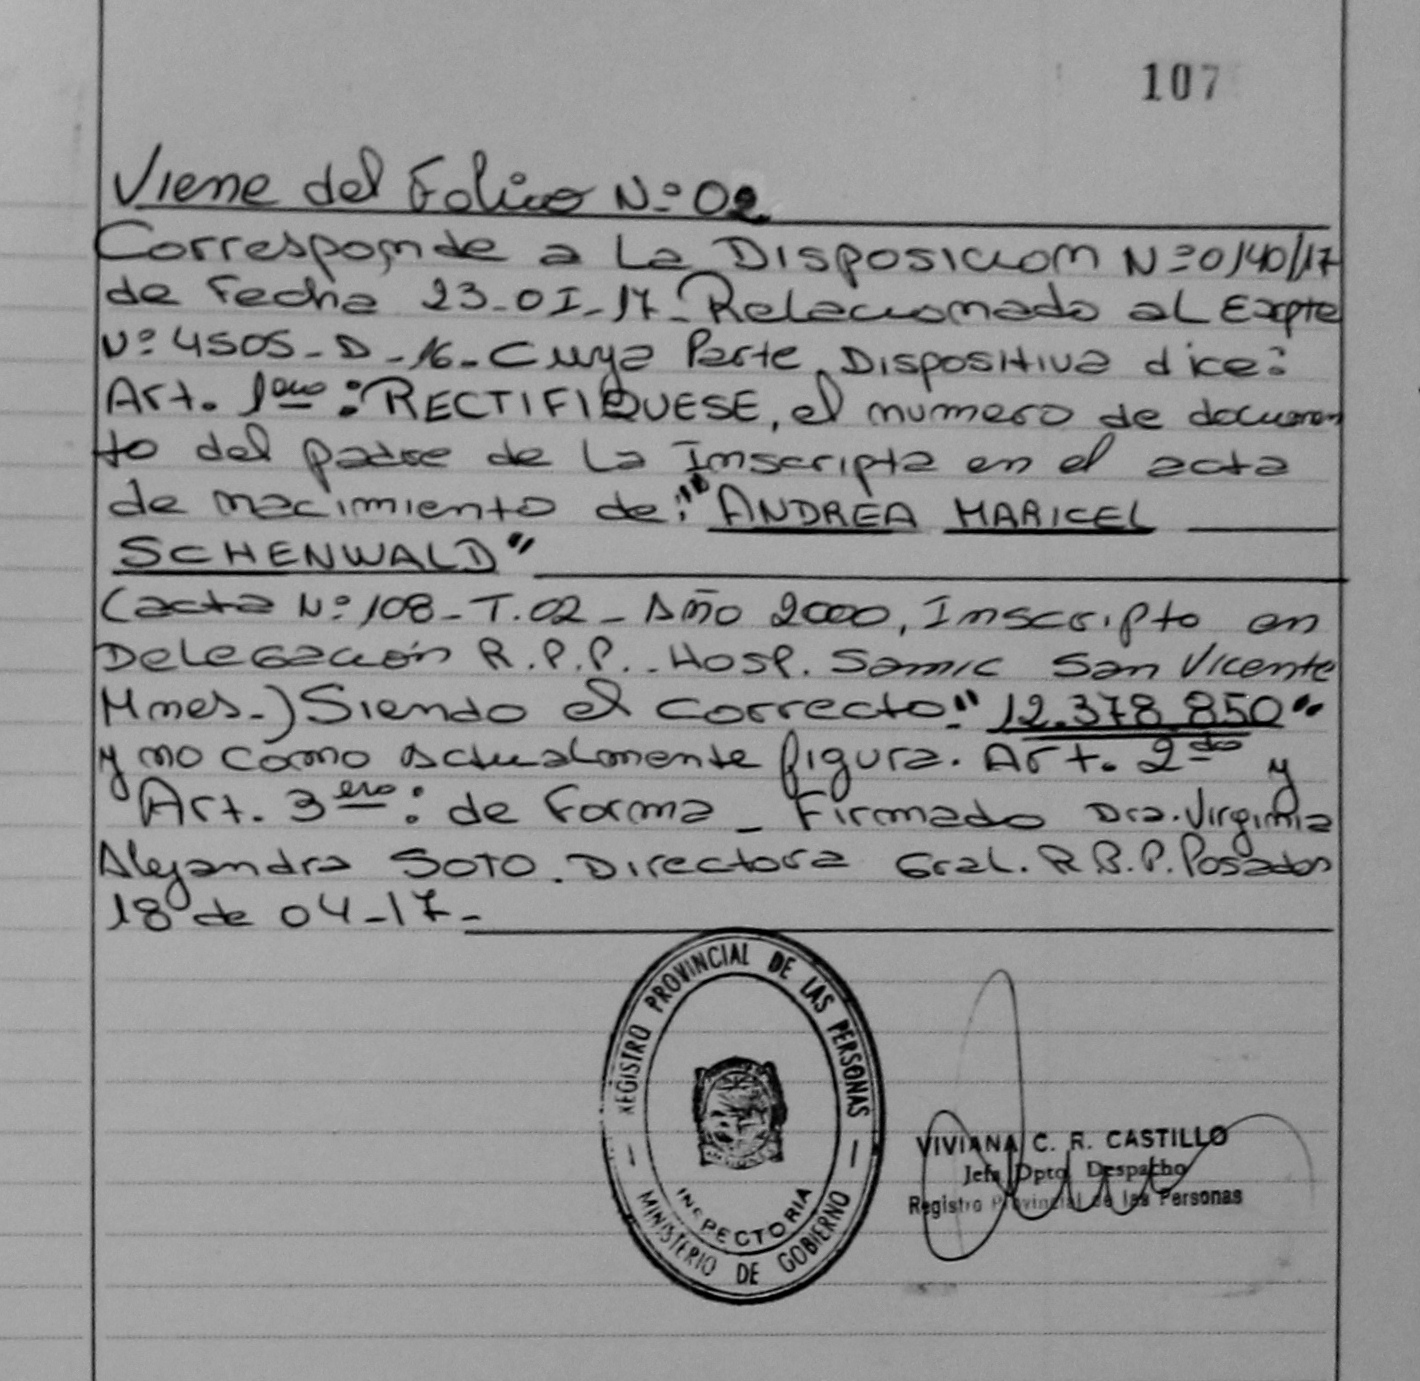 107
Viene del Folio Nº 02
Corresponde a La Disposicion Nº 0140/17
de Fecha 23-01-17- Relacionado al Expte
Nº 4505-D-16- Cuya Parte Dispositiva dice:
Art. 1ero: RECTIFIQUESE, el numero de documen
to del padre de La Inscripta en el acta
de nacimiento de: "ANDREA MARICEL
SCHENWALD"
(acta Nº 108-T.02-Año 2000, Inscripto en
Delegación R.P.P.. Hosp. Samic San Vicente
Mnes.-) Siendo el correcto: "12.378.850"
y no como actualmente figura. Art. 2do y
Art. 3ero: de Forma - Firmado Dra. Virginia
Alejandra SOTO. Directora Gral. R.P.P. Posadas
18 de 04-17-
REGISTRO PROVINCIAL DE LAS PERSONAS
INSPECTORIA
MINISTERIO DE GOBIERNO
VIVIANA C. R. CASTILLO
Jefa Dpto Despacho
Registro Provincial de las Personas